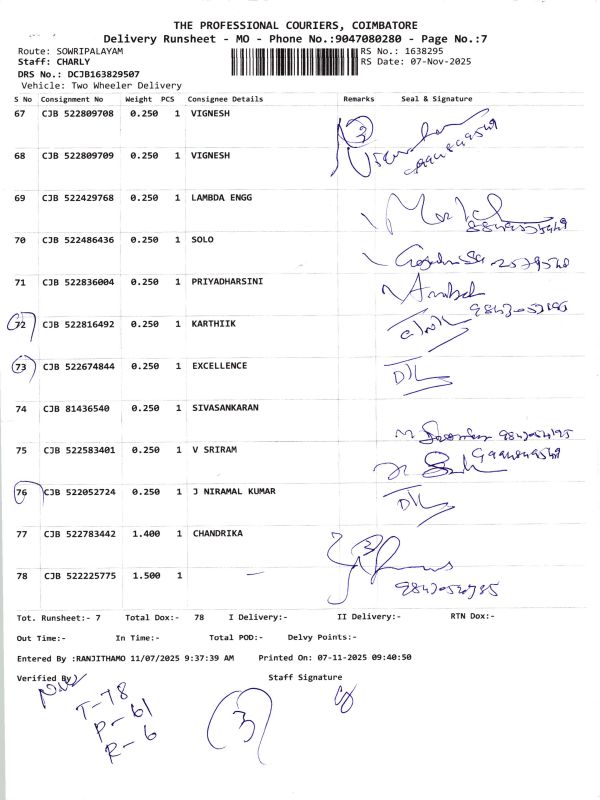 THE PROFESSIONAL COURIERS, COIMBATORE
Delivery Runsheet - MO - Phone No.:9047080280 - Page No.:7
Route: SOWRIPALAYAM RS No.: 1638295
Staff: CHARLY RS Date: 07-Nov-2025
DRS No.: DCJB163829507
Vehicle: Two Wheeler Delivery
S No Consignment No Weight PCS Consignee Details Remarks Seal & Signature
67 CJB 522809708 0.250 1 VIGNESH
68 CJB 522809709 0.250 1 VIGNESH
69 CJB 522429768 0.250 1 LAMBDA ENGG
70 CJB 522486436 0.250 1 SOLO
71 CJB 522836004 0.250 1 PRIYADHARSINI
72 CJB 522816492 0.250 1 KARTHIIK
73 CJB 522674844 0.250 1 EXCELLENCE
74 CJB 81436540 0.250 1 SIVASANKARAN
75 CJB 522583401 0.250 1 V SRIRAM
76 CJB 522052724 0.250 1 J NIRAMAL KUMAR
77 CJB 522783442 1.400 1 CHANDRIKA
78 CJB 522225775 1.500 1
Tot. Runsheet:- 7 Total Dox:- 78 I Delivery:- II Delivery:- RTN Dox:-
Out Time:- In Time:- Total POD:- Delvy Points:-
Entered By :RANJITHAMO 11/07/2025 9:37:39 AM Printed On: 07-11-2025 09:40:50
Verified By Staff Signature
T-78
P-61
R-6
3